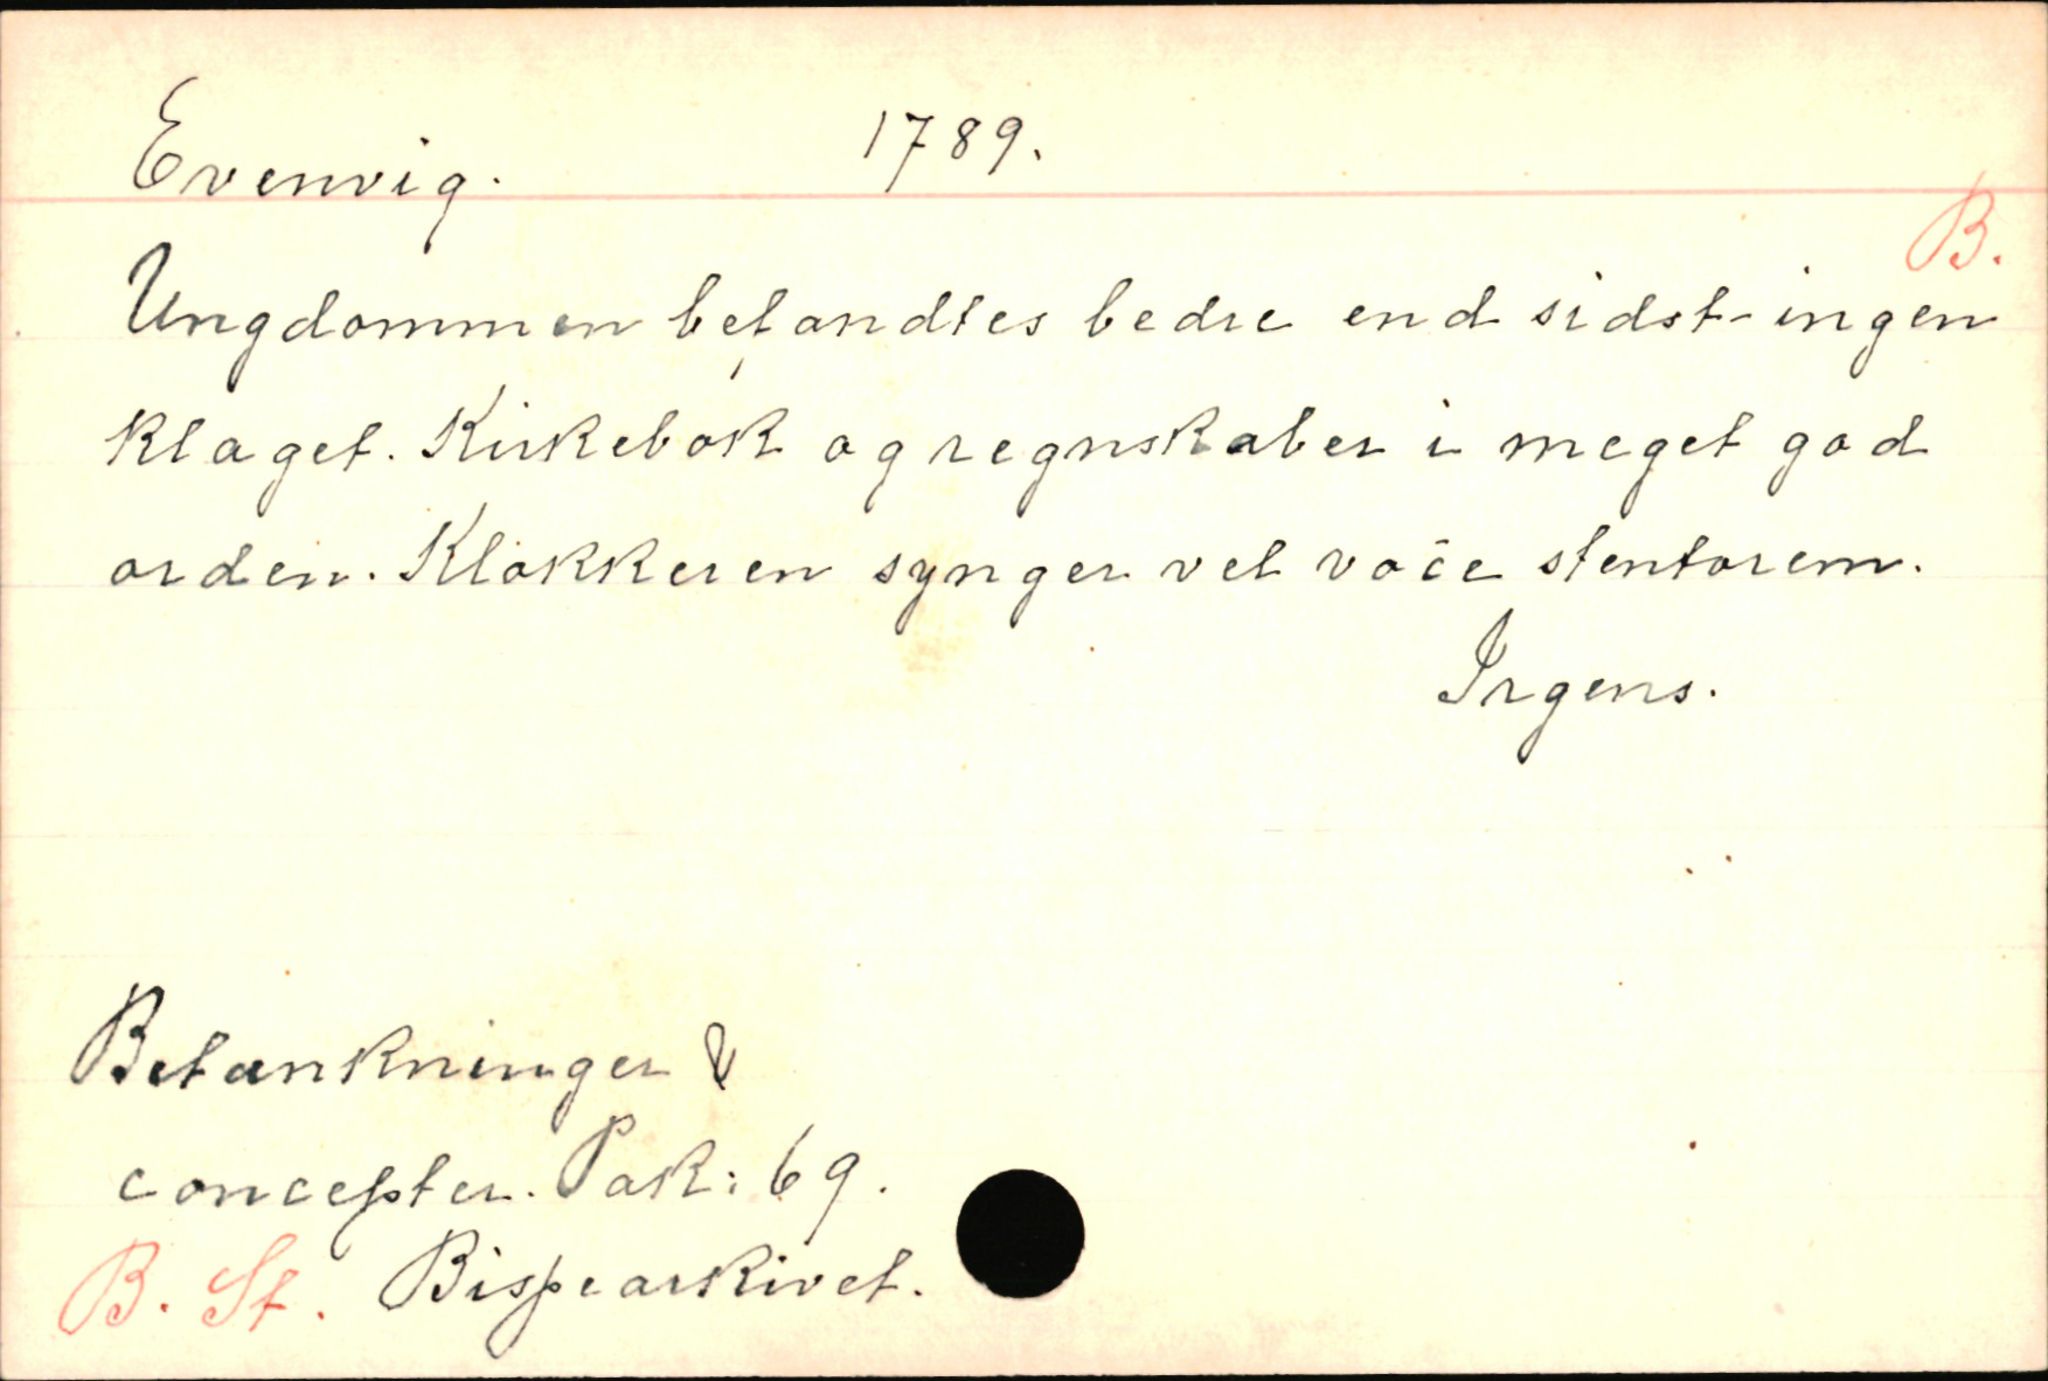 Evenvig. 1789.
B.
Ungdommen befandtes bedre end sidst - ingen
klaget. Kirkebok og regnskaber i meget god
orden. Klokkeren synger vel voce stentorem.
Irgens.
Betænkninger &
concepter. Pak: 69.
B. St. Bispearkivet.